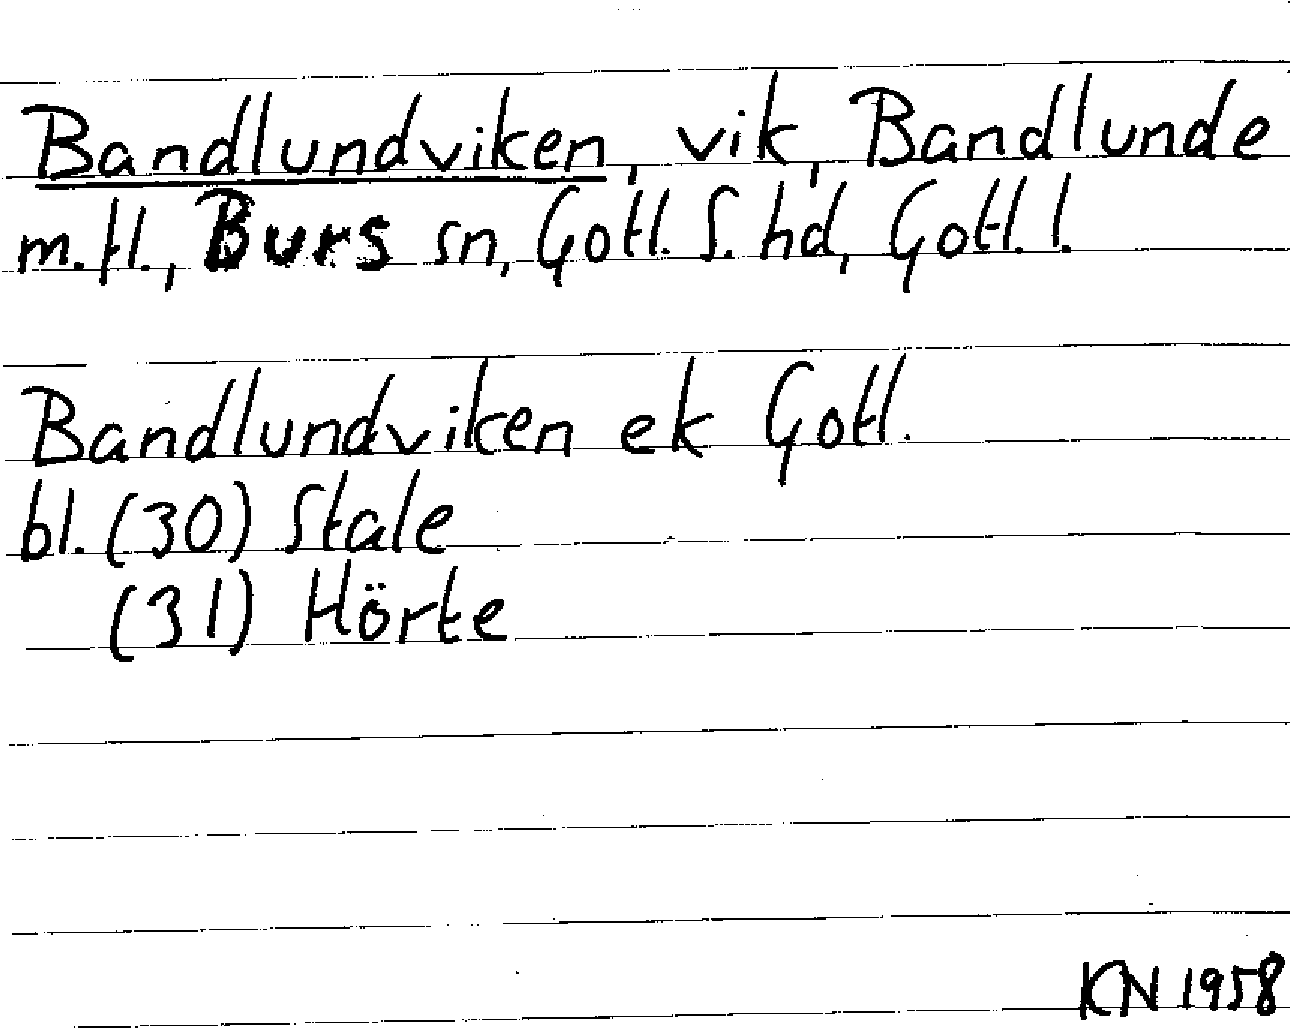 Bandlundviken, vik, Bandlunde
m.fl., Burs sn, Gotl. S. hd, Gotl. l.
Bandlundviken ek Gotl.
bl. (30) Stale
(31) Hörte
KN 1958